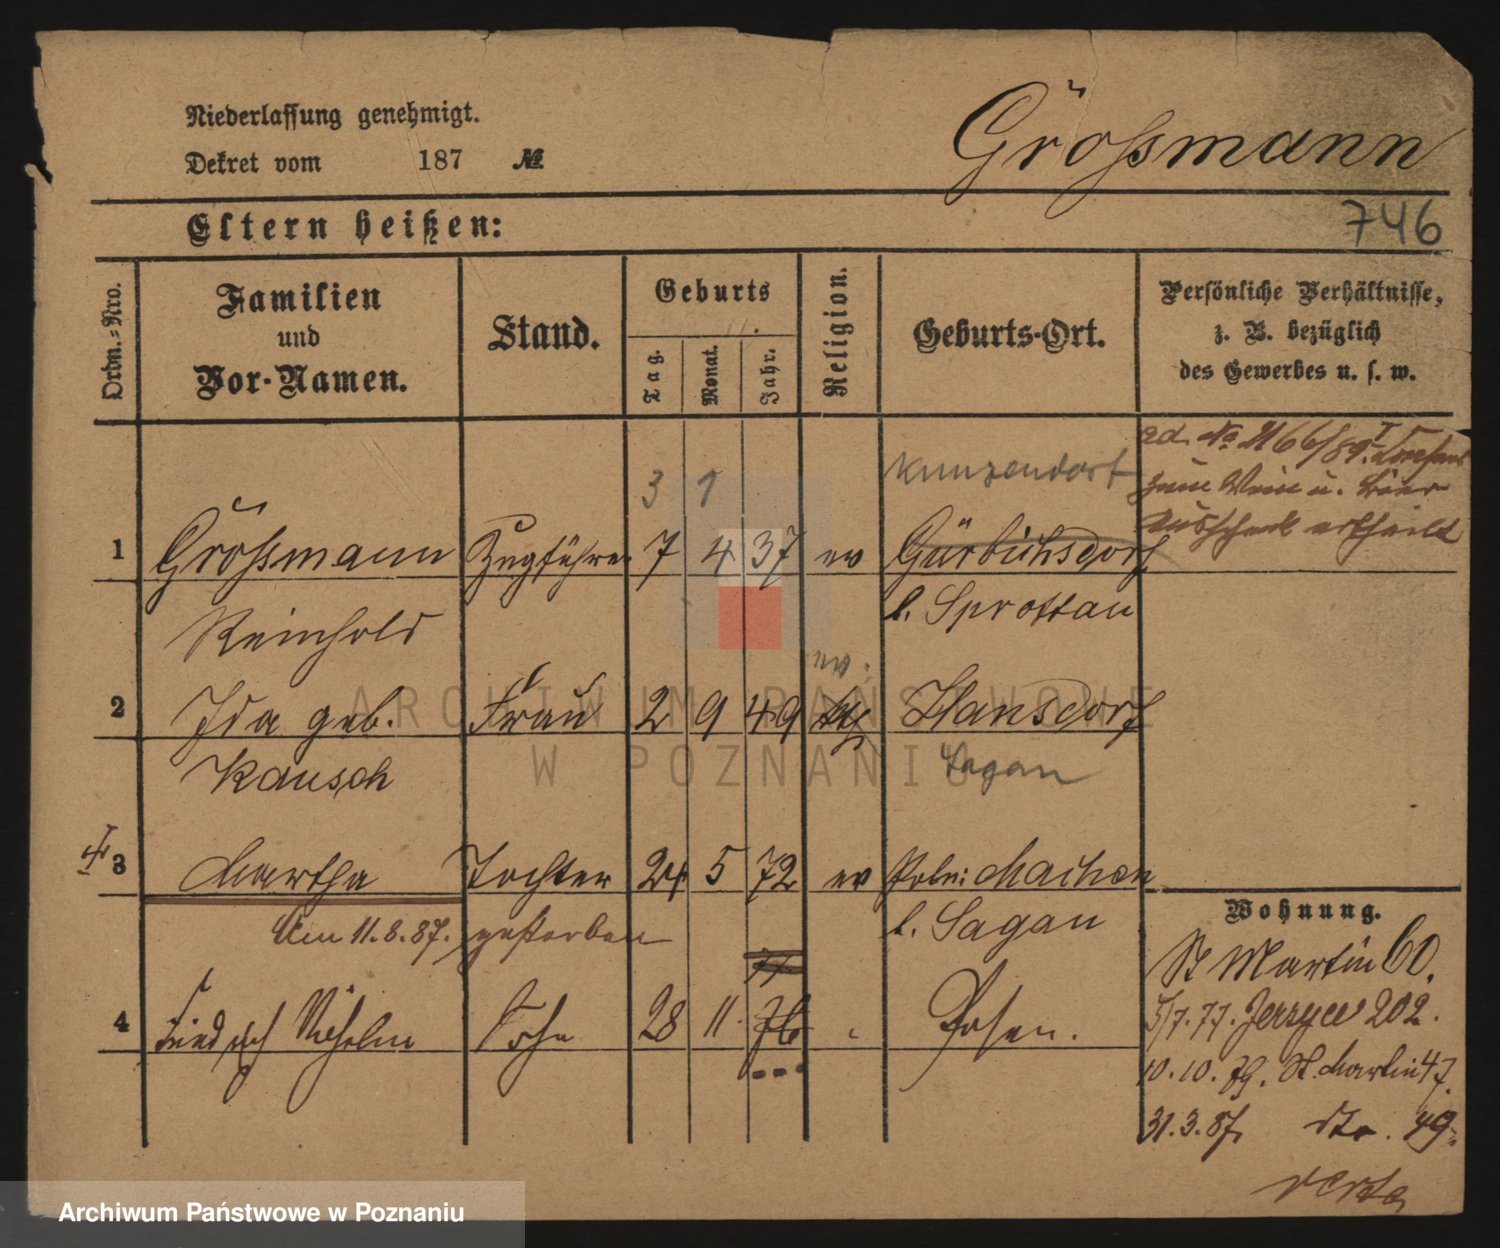 Niederlassung genehmigt.
Dekret vom 187 №
Großmann
Eltern heißen:
746
Ordn.-Nro.
Familien
und
Vor-Namen.
Stand.
Geburts
Tag.
Monat.
Jahr.
Religion.
Geburts-Ort.
Persönliche Verhältnisse,
z. B. bezüglich
des Gewerbes u. s. w.
ad. No 466/89 I
zum Wein u. Bier
Ausschank ertheilt
3 1 Kunzendorf
1 Großmann Zugführer 7 4 37 ev Gürbichsdorf
Reinhold b. Sprottau
ev.
2 Ida geb. Frau 2 9 49 Hansdorf
Kausch Sagan
† 3 Martha Tochter 24 5 72 ev Poln: Machen
Am 11.8.87. gestorben b. Sagan
77
4 Friedrich Wilhelm Sohn 28 11. 76 Posen.
Wohnung.
St Martin 60.
5/7.77. Jerzyce 202.
10.10.79. St. Martin 47.
31.3.87. dto. 49.
verte
ARCHIWUM PAŃSTWOWE
W POZNANIU
Archiwum Państwowe w Poznaniu